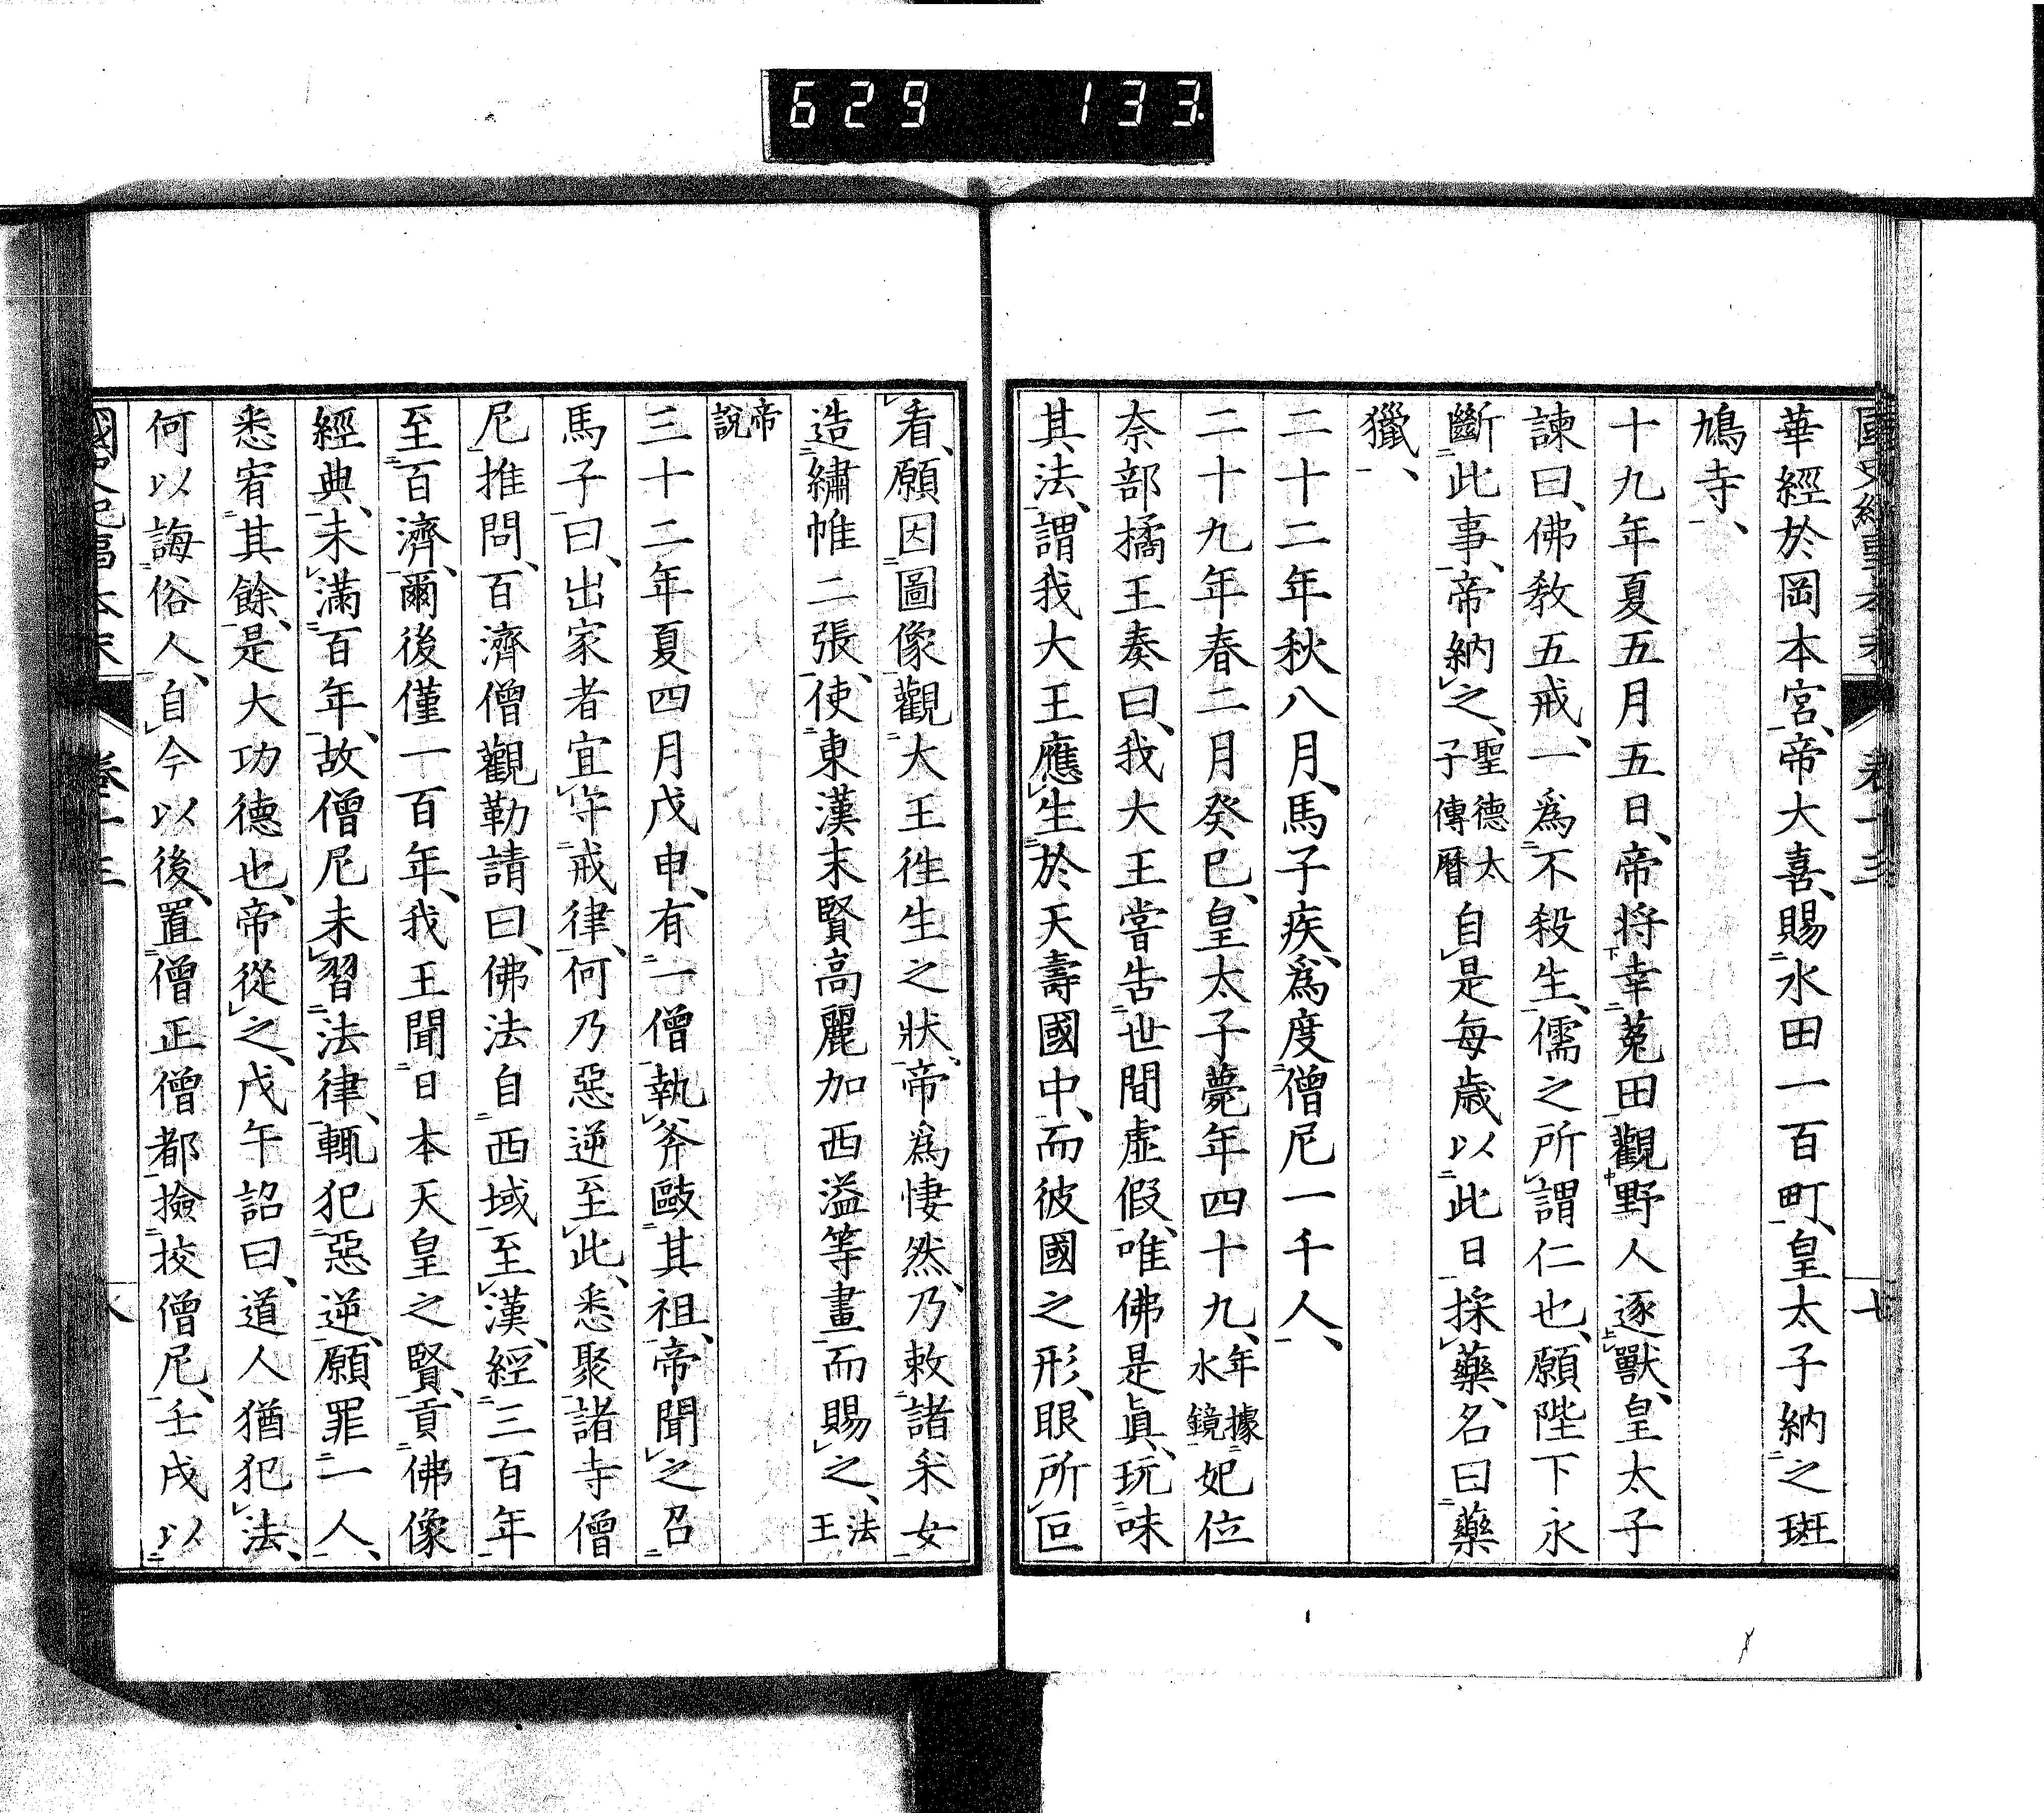 629 133
國史紀事本末 卷十三 七
華經於岡本宮、帝大喜、賜水田一百町、皇太子納之斑
鳩寺、
十九年夏五月五日、帝將幸菟田觀野人逐獸、皇太子
諫曰、佛教五戒、一爲不殺生、儒之所謂仁也、願陛下永
斷此事、帝納之、聖德太子傳曆自是每歲以此日採藥、名曰藥
獵、
二十二年秋八月、馬子疾、爲度僧尼一千人、
二十九年春二月癸巳、皇太子薨年四十九、年據水鏡妃位
奈部橘王奏曰、我大王嘗告世間虛假、唯佛是眞、玩味
其法、謂我大王應生於天壽國中、而彼國之形、眼所叵
看、願因圖像、觀大王徃生之狀、帝爲悽然、乃敕諸釆女
造繡帷二張、使東漢末賢高麗加西溢等畫而賜之、法王
帝說
三十二年夏四月戊申、有一僧執斧毆其祖、帝聞之召
馬子曰、出家者宜守戒律、何乃惡逆至此、悉聚諸寺僧
尼推問、百濟僧觀勒請曰、佛法自西域至漢、經三百年
至百濟、爾後僅一百年、我王聞日本天皇之賢、貢佛像
經典、未滿百年、故僧尼未習法律、輒犯惡逆、願罪一人、
悉宥其餘、是大功德也、帝從之、戊午詔曰、道人猶犯法、
何以誨俗人、自今以後、置僧正僧都、撿挍僧尼、壬戌以
國史紀事本末 卷十三